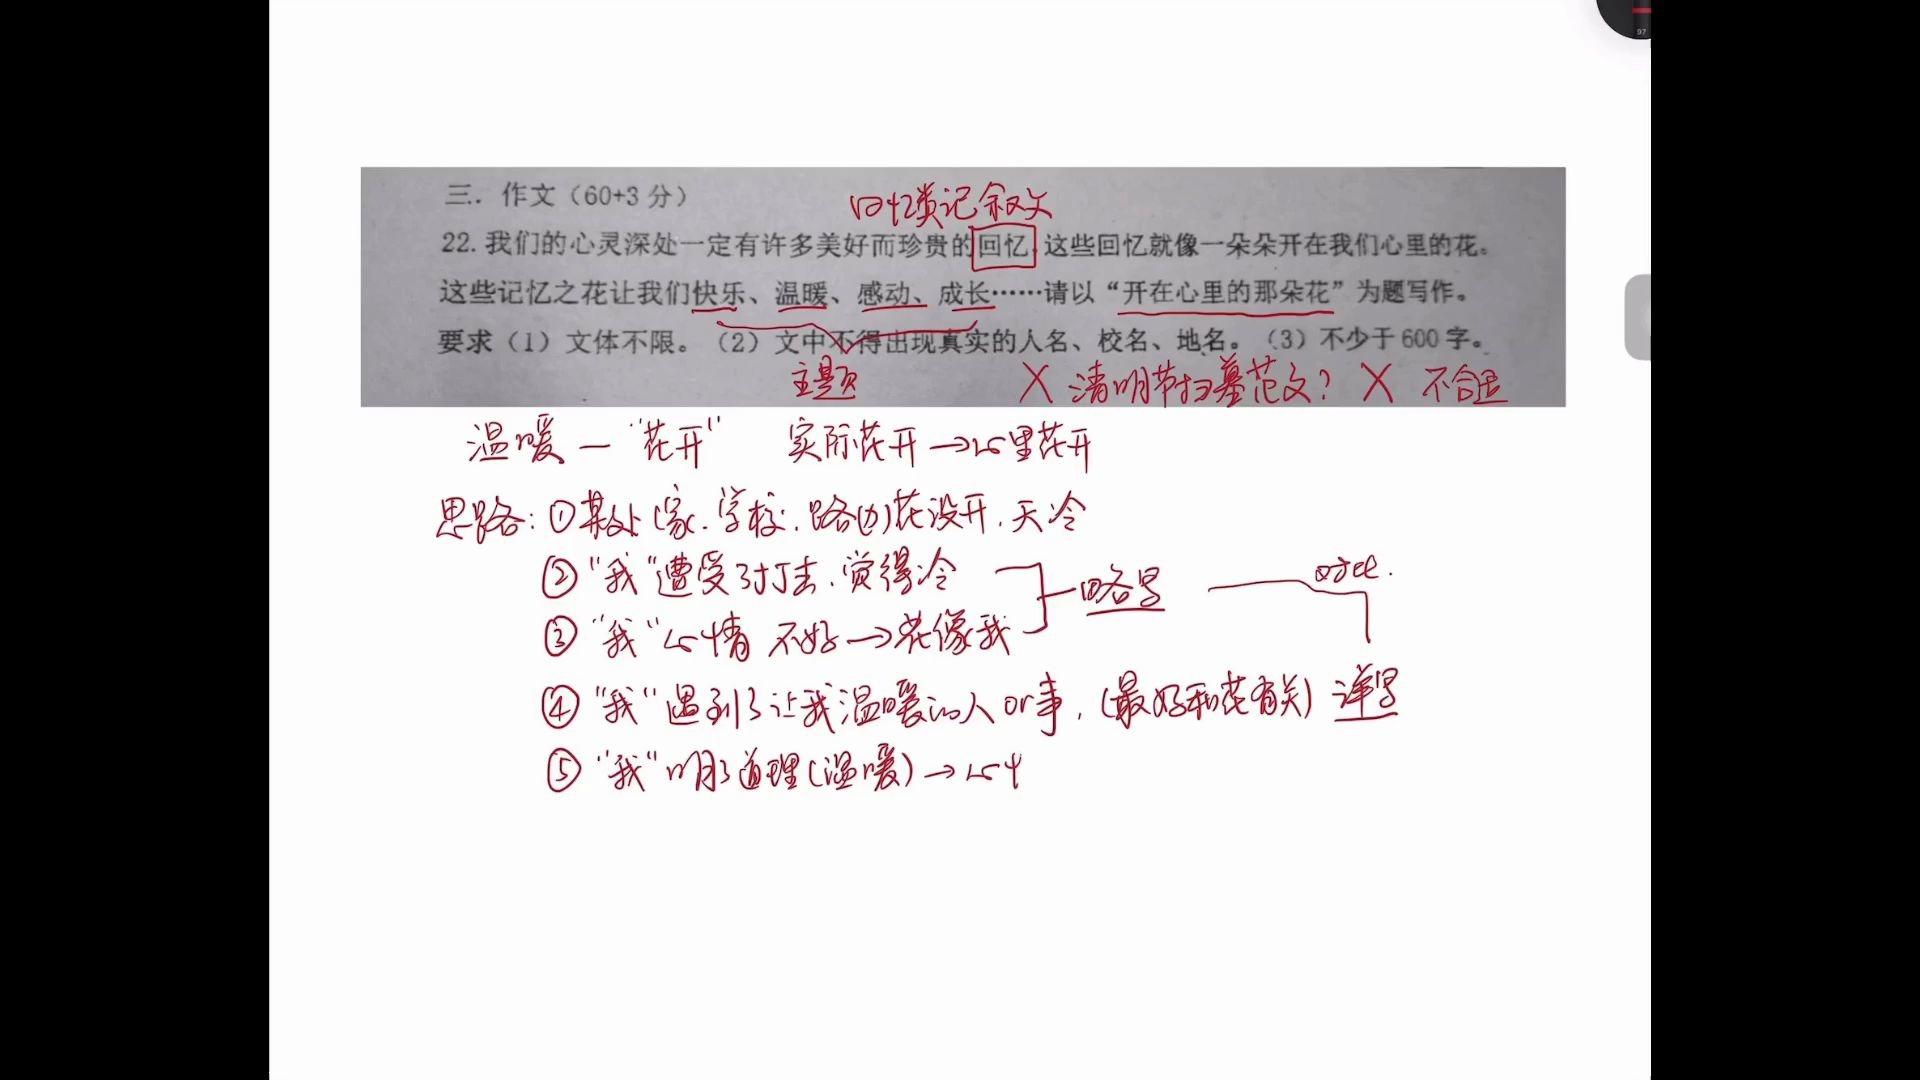 97
三. 作文（60+3 分）
回忆类记叙文
22. 我们的心灵深处一定有许多美好而珍贵的回忆，这些回忆就像一朵朵开在我们心里的花。
这些记忆之花让我们快乐、温暖、感动、成长……请以“开在心里的那朵花”为题写作。
要求（1）文体不限。（2）文中不得出现真实的人名、校名、地名。（3）不少于 600 字。
主题
X 清明节扫墓范文？ X 不合适
温暖 — “花开” 实际花开→心里花开
思路：①某处（家、学校、路边）花没开，天冷
②“我”遭受了打击，觉得冷
略写
对比.
③“我”心情不好→花像我
④“我”遇到了让我温暖的人or事，（最好和花有关）详写
⑤“我”明了道理（温暖）→心